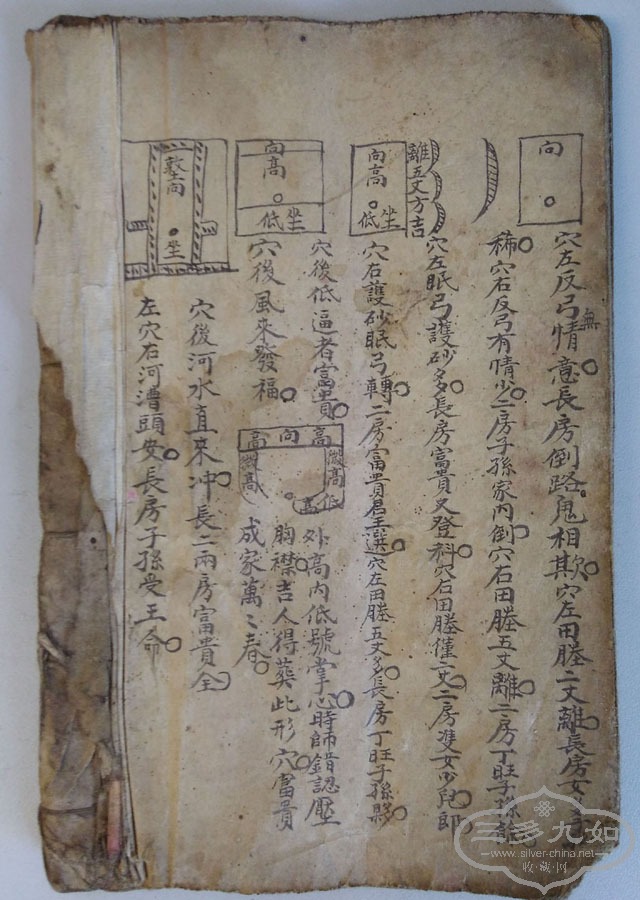 向
穴左反弓無情意長房倒路鬼相欺穴左田塍二丈離長房女
稀穴右反弓有情少二房子孫家内倒穴右田塍五丈離二房丁旺子孫
離五丈方吉
穴左眠弓護砂多長房富貴又登科穴右田塍僅二丈二房雙女少兒郎
向高
坐低
穴右護砂眠弓轉二房富貴君王選穴左田塍五丈多長房丁旺子孫夥
向高
坐低
穴後低逼者富貴
穴後風來發福
高向高
微高
微高低
高
外高内低號掌心時師錯認壓
胸襟吉人得葬此形穴富貴
成家萬々春
墪向
坐
穴後河水直來冲長二兩房富貴全
左穴右河漕頭安長房子孫受王命
三多九如
www.silver-china.net
收·藏·网